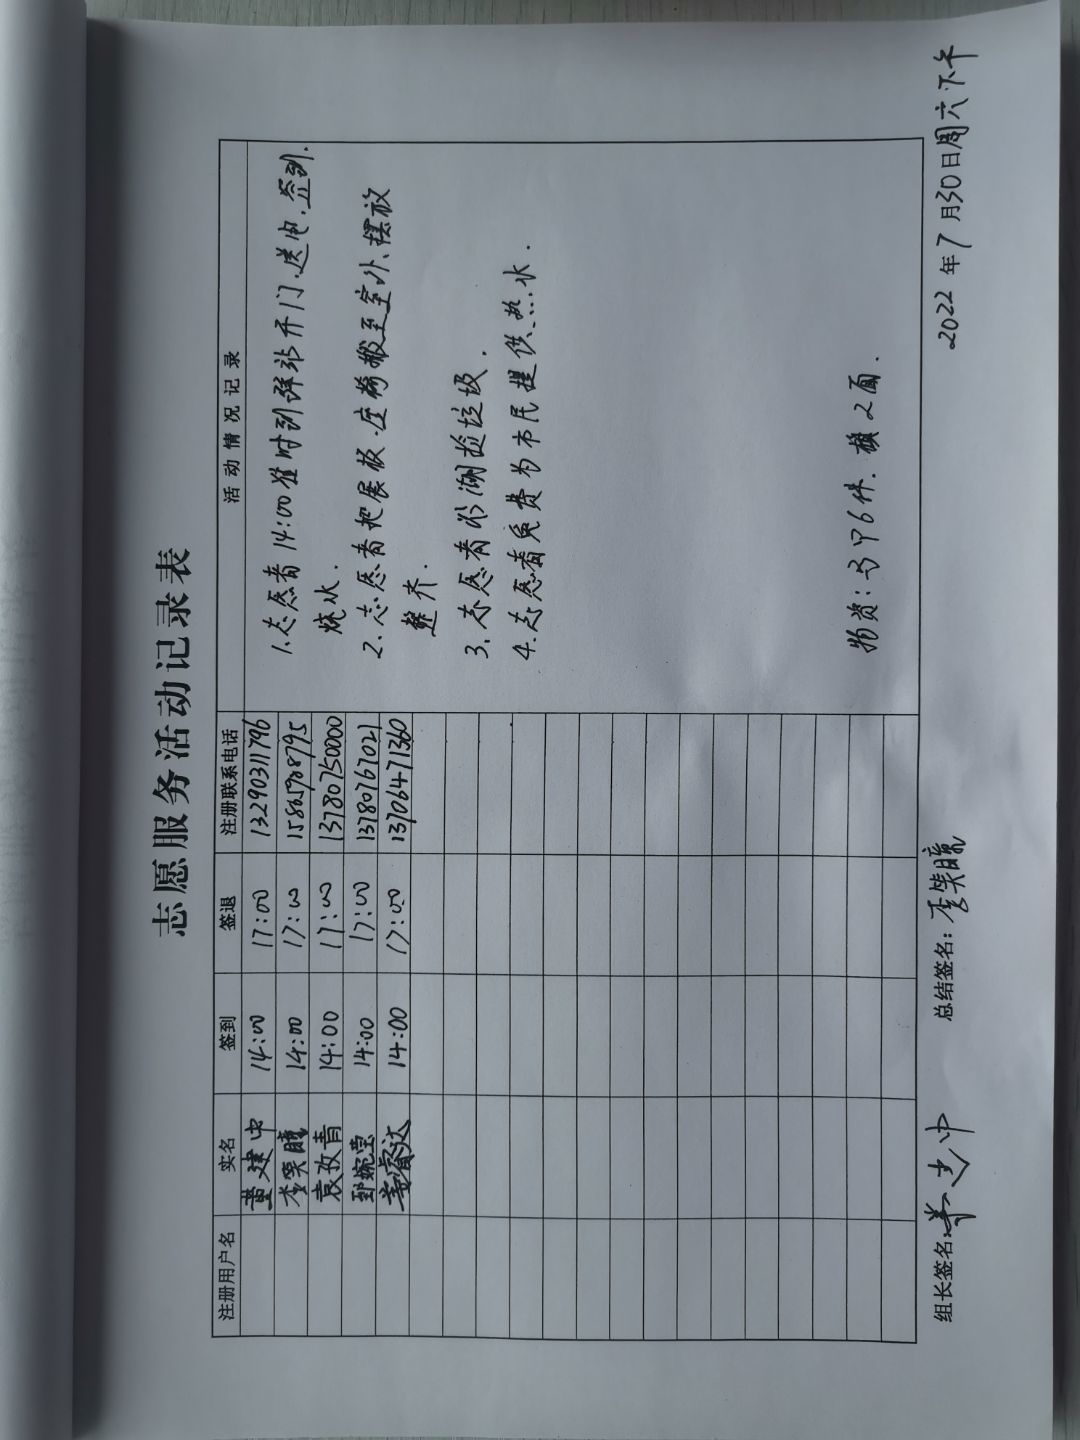 志愿服务活动记录表
注册用户名 实名 签到 签退 注册联系电话 活动情况记录
黄建中 14:00 17:00 13290311796
李笑晴 14:00 17:00 15865988795
袁孜青 14:00 17:00 13780750000
婉莹 14:00 17:00 13780767021
姜睿达 14:00 17:00 13706471360
1.志愿者14:00准时到驿站开门.送电.签到.
烧水.
2.志愿者把展板.座椅搬至室外、摆放
整齐.
3.志愿者环湖捡垃圾.
4.志愿者免费为市民提供热水.
物资:马甲6件.旗2面.
组长签名: 总结签名:李笑晴 2022年7月30日周六下午